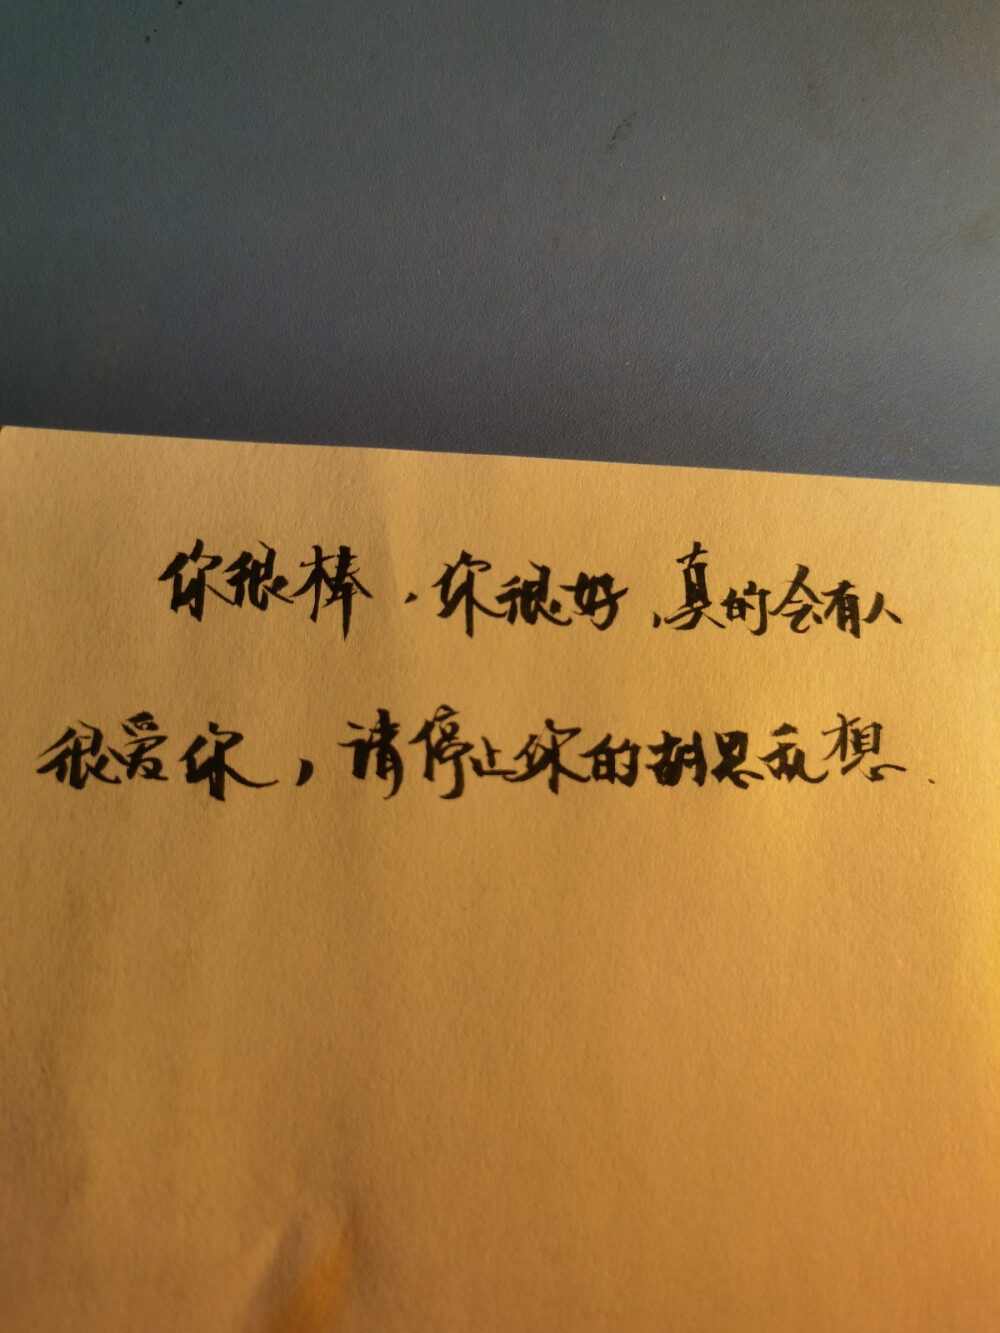 你很棒，你很好，真的会有人
很爱你，请停止你的胡思乱想.